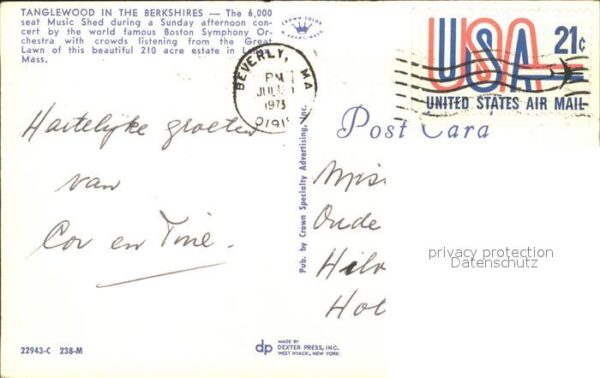 TANGLEWOOD IN THE BERKSHIRES — The 6,000
seat Music Shed during a Sunday afternoon con-
cert by the world famous Boston Symphony Or-
chestra with crowds listening from the Great
Lawn of this beautiful 210 acre estate in
Mass.
CROWN COLOR
BEVERLY, MA
PM
JUL
1973
USA 21¢
UNITED STATES AIR MAIL
Post Card
Hartelijke groeten
van
Cor en Tine.
Pub. by Crown Specialty Advertising, Inc.
Oude
privacy protection
Datenschutz
22943-C 238-M
dp
MADE BY
DEXTER PRESS, INC.
WEST NYACK, NEW YORK